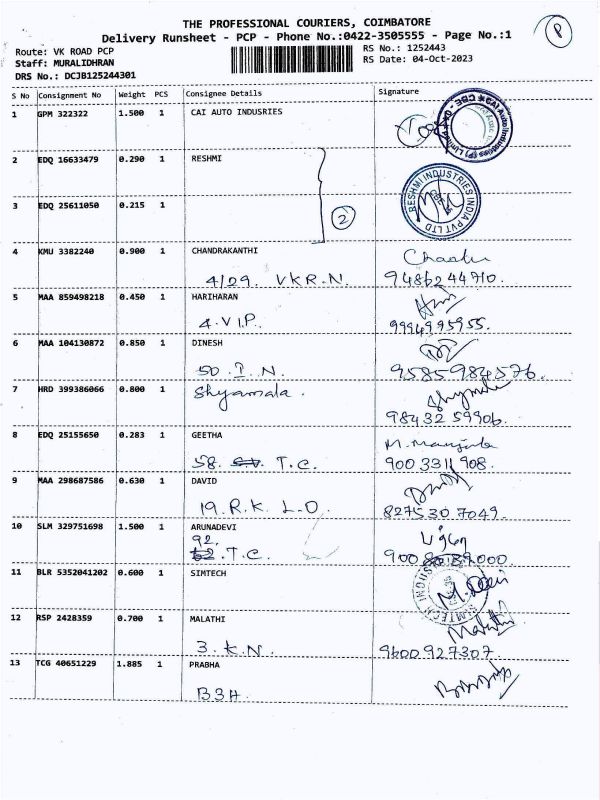 THE PROFESSIONAL COURIERS, COIMBATORE
Delivery Runsheet - PCP - Phone No.:0422-3505555 - Page No.:1
P
Route: VK ROAD PCP
RS No.: 1252443
Staff: MURALIDHRAN
RS Date: 04-Oct-2023
DRS No.: DCJB125244301
S No Consignment No Weight PCS Consignee Details Signature
1 GPM 322322 1.500 1 CAI AUTO INDUSRIES
CAI Auto Industries (P) Limited
2 EDQ 16633479 0.290 1 RESHMI
RESHMI INDUSTRIES INDIA PVT LTD
3 EDQ 25611050 0.215 1
2
4 KMU 3382240 0.900 1 CHANDRAKANTHI
4/29. V K R. N. 9486244710.
5 MAA 859498218 0.450 1 HARIHARAN
4. V I P. 9994995955.
6 MAA 104130872 0.850 1 DINESH
50. I. N. 9585984576.
7 HRD 399386066 0.800 1 Shyamala.
98432 59906.
8 EDQ 25155650 0.283 1 GEETHA M. Manjula
58. T.C. 900 3311 908.
9 MAA 298687586 0.630 1 DAVID
19. R. K. L. O. 827530 7049.
10 SLM 329751698 1.500 1 ARUNADEVI
92.
T.C.
11 BLR 5352041202 0.600 1 SIMTECH
SIMTECH INDUSTRIES
12 RSP 2428359 0.700 1 MALATHI Malathi
3. K. N. 9600927307.
13 TCG 40651229 1.885 1 PRABHA
B3H.